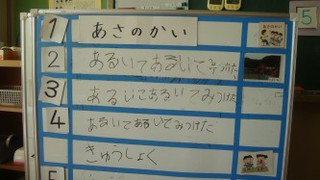 5
1 あさのかい
2 あるいてあるいてみつけた
3 あるいてあるいてみつけた
4 あるいてあるいてみつけた
きゅうしょく
5